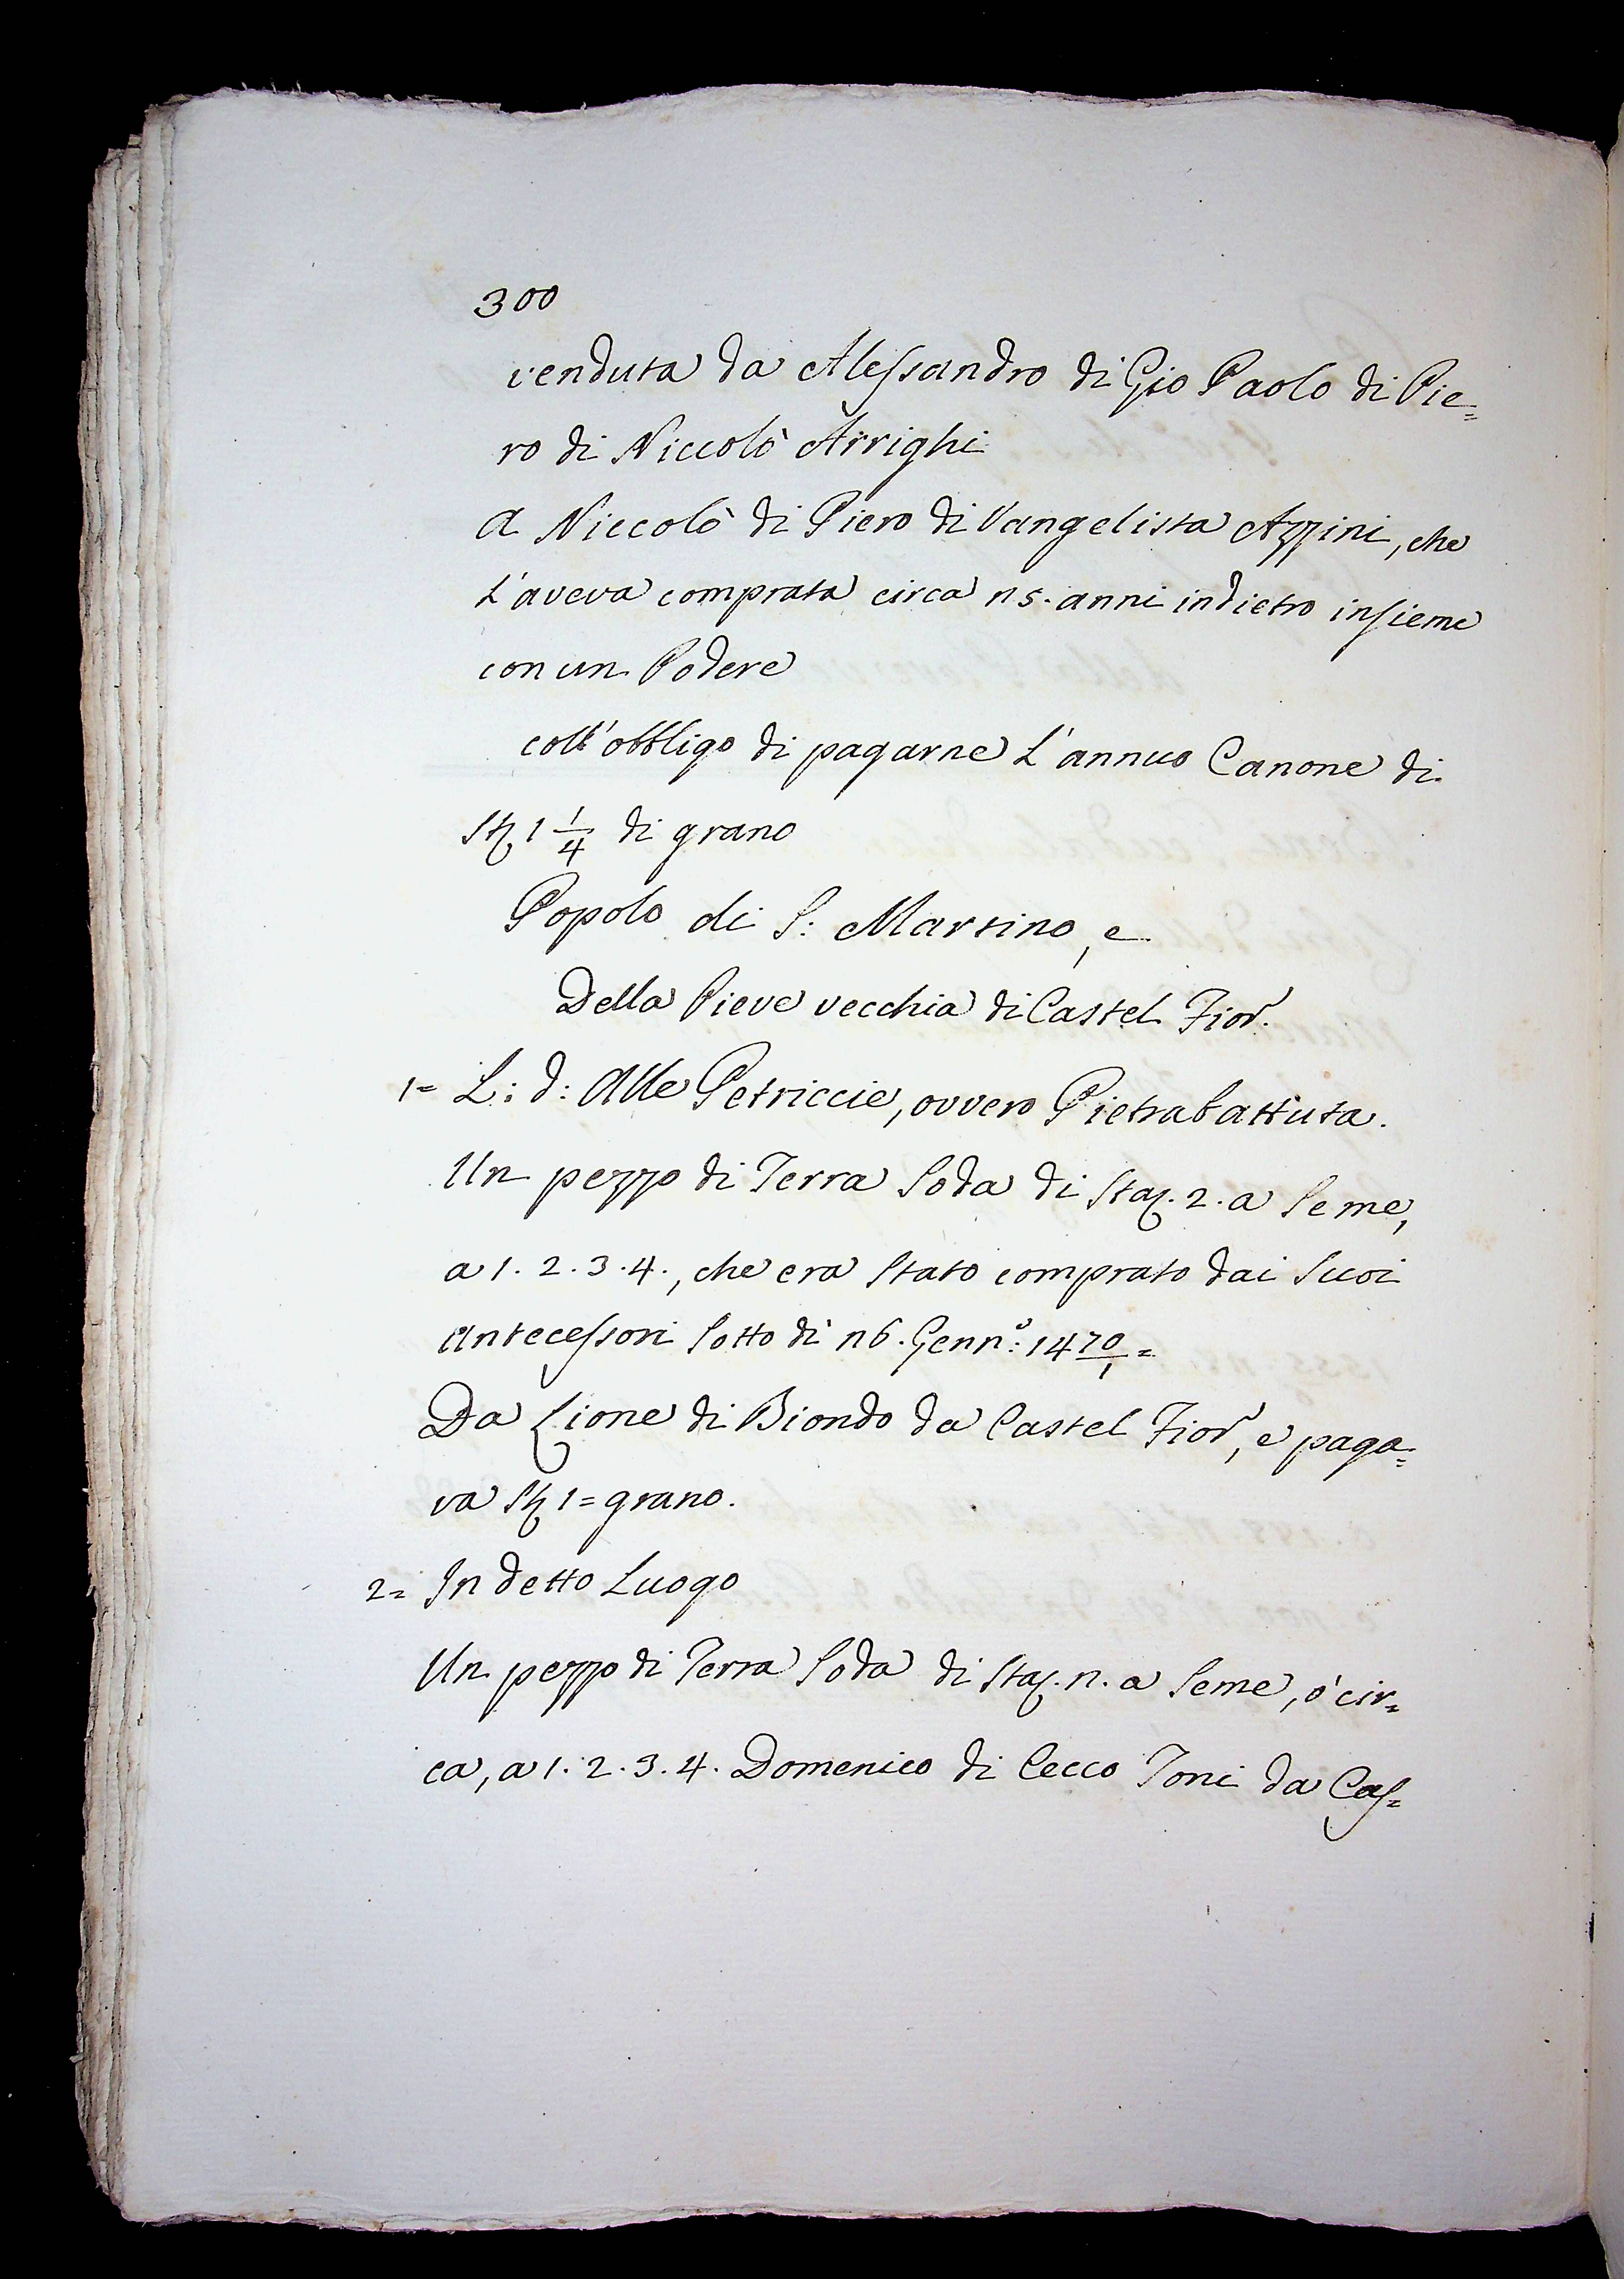 300
venduta da Alessandro di Gio Paolo di Pie=
ro di Niccolò Arrighi
a Niccolò di Piero di Vangelista Azzini, che
l'aveva comprata circa 15. anni indietro insieme
con un Podere
coll'obbligo di pagarne l'annuo Canone di
Sta 1 1/4 di grano
Popolo di S: Martino, e
Della Pieve vecchia di Castel Fior.
1= L: d: Alle Petriccie, ovvero Pietrabattuta.
Un pezzo di Terra Soda di Sta. 2. a Seme,
a 1. 2. 3. 4., che era Stato comprato dai Suoi
Antecessori Sotto dì 16. Genn:º 1470/1=
Da Lione di Biondo da Castel Fior, e paga=
va Sta 1= grano.
2= In detto Luogo
Un pezzo di Terra Soda di Sta. 11. a Seme, ò cir=
ca, a 1. 2. 3. 4. Domenico di Cecco Toni da Cas=